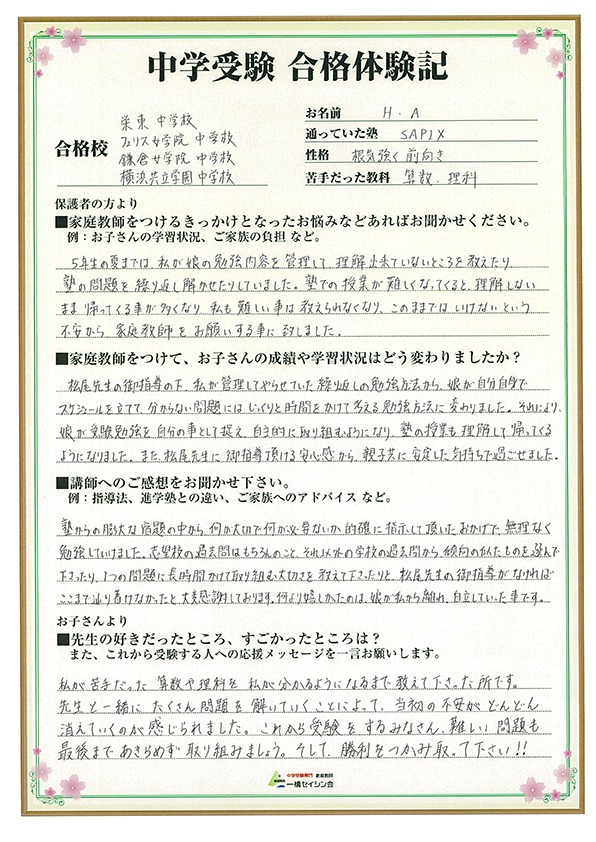 中学受験 合格体験記
合格校
栄東 中学校
フェリス女学院 中学校
鎌倉女学院 中学校
横浜共立学園 中学校
お名前 H.A
通っていた塾 SAPIX
性格 根気強く前向き
苦手だった教科 算数・理科
保護者の方より
■家庭教師をつけるきっかけとなったお悩みなどあればお聞かせください。
例：お子さんの学習状況、ご家族の負担 など。
5年生の夏までは、私が娘の勉強内容を管理して、理解出来ていないところを教えたり、
塾の問題を繰り返し解かせたりしていました。塾での授業が難しくなってくると、理解しない
まま帰ってくる事が多くなり、私も難しい事は教えられなくなり、このままではいけないという
不安から、家庭教師をお願いする事に致しました。
■家庭教師をつけて、お子さんの成績や学習状況はどう変わりましたか？
松尾先生の御指導の下、私が管理してやらせていた繰り返しの勉強方法から、娘が自分自身で
スケジュールを立てて、分からない問題にはじっくりと時間をかけて考える勉強方法に変わりました。それにより、
娘が受験勉強を自分の事として捉え、自主的に取り組むようになり、塾の授業も理解して帰ってくる
ようになりました。また、松尾先生に御指導頂ける安心感から、親子共に安定した気持ちで過ごせました。
■講師へのご感想をお聞かせ下さい。
例：指導法、進学塾との違い、ご家族へのアドバイス など。
塾からの膨大な宿題の中から、何が大切で何が必要ないか的確に指示して頂いたおかげで、無理なく
勉強していけました。志望校の過去問はもちろんのこと、それ以外の学校の過去問から、傾向の似たものを選んで
下さったり、1つの問題に長時間かけて取り組む大切さを教えて下さったりと、松尾先生の御指導がなければ
ここまで辿り着けなかったと大変感謝しております。何より嬉しかったのは、娘が私から離れ、自立していった事です。
お子さんより
■先生の好きだったところ、すごかったところは？
また、これから受験する人への応援メッセージを一言お願いします。
私が苦手だった算数や理科を私が分かるようになるまで教えて下さった所です。
先生と一緒にたくさん問題を解いていくことによって、当初の不安がどんどん
消えていくのが感じられました。これから受験をするみなさん、難しい問題も
最後まであきらめず取り組みましょう。そして、勝利をつかみ取って下さい!!
中学受験専門 家庭教師
一橋セイシン会